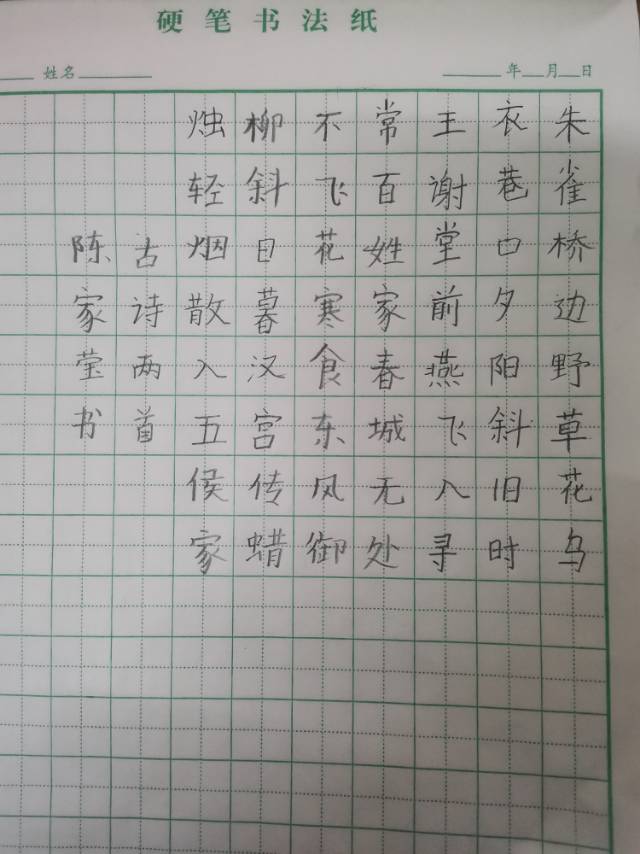 硬笔书法纸
姓名 年 月 日
朱雀桥边野草花乌
衣巷口夕阳斜旧时
王谢堂前燕飞入寻
常百姓家春城无处
不飞花寒食东风御
柳斜日暮汉宫传蜡
烛轻烟散入五侯家
古诗两首
陈家莹书